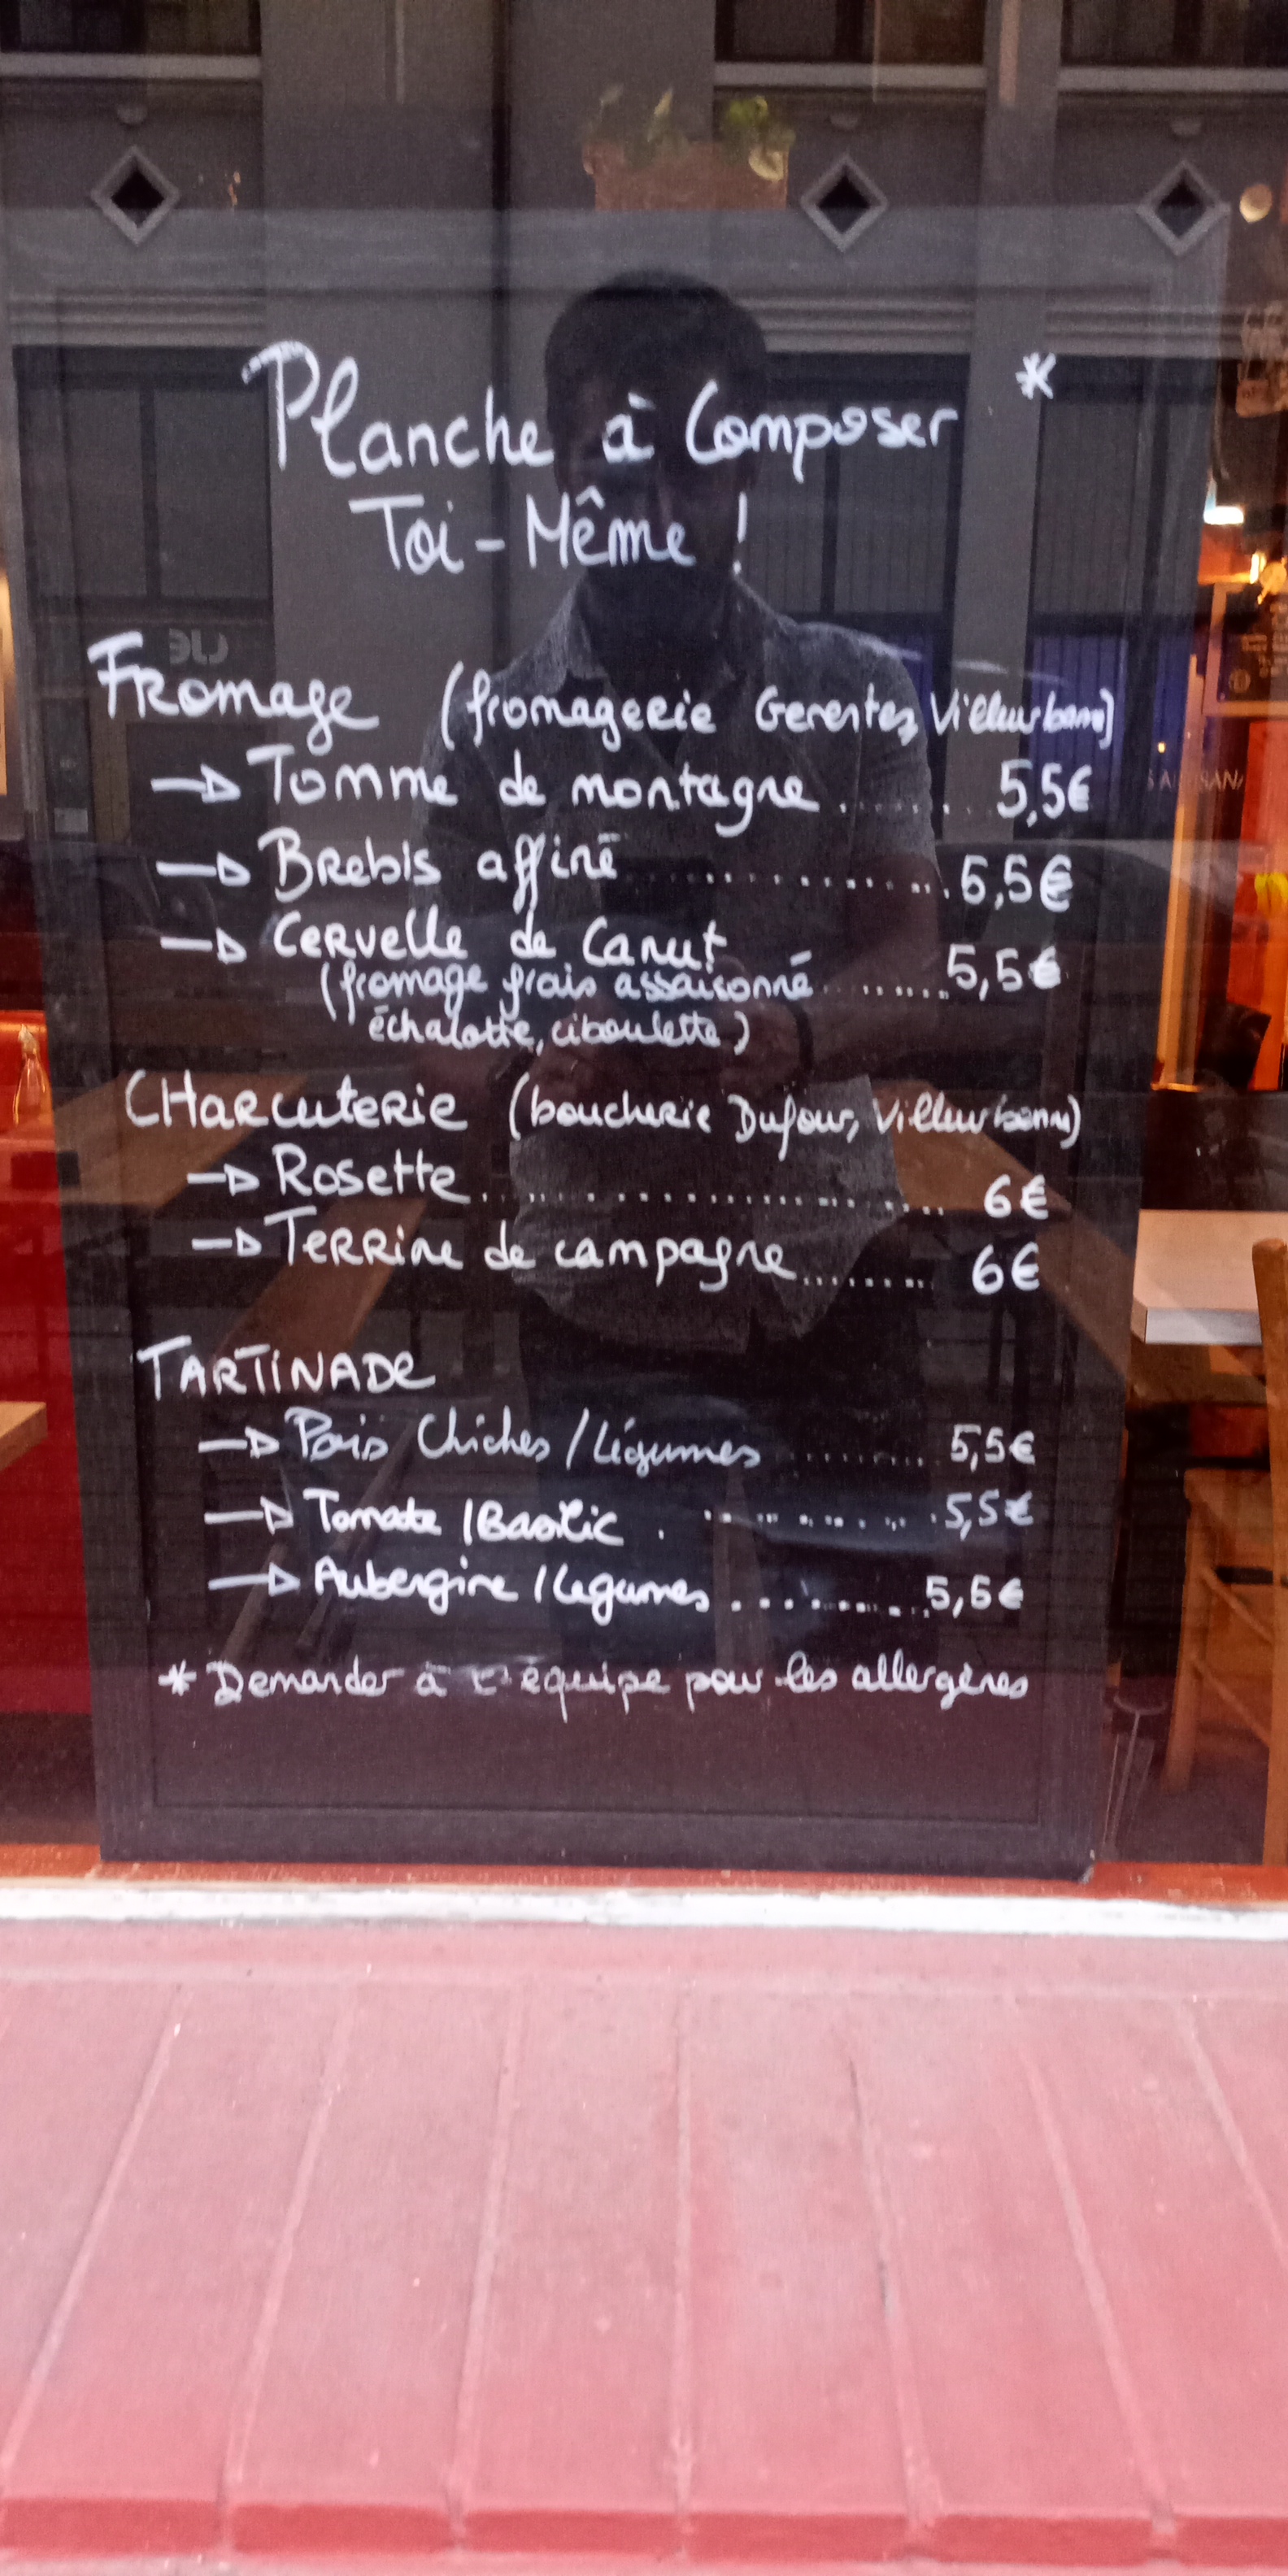 Planche à Composer *
Toi-Même !
Fromage (fromagerie Gerentes, Villeurbanne)
→ Tomme de montagne ........ 5,5€
→ Brebis affiné ............ 5,5€
→ Cervelle de Canut
(fromage frais assaisonné ........ 5,5€
échalotte, ciboulette)
CHarcuterie (boucherie Dufour, Villeurbanne)
→ Rosette .................... 6€
→ Terrine de campagne ........ 6€
TARTINADE
→ Pois Chiches / Légumes ........ 5,5€
→ Tomate / Basilic ........ 5,5€
→ Aubergine / Legumes ........ 5,5€
* Demander à l'équipe pour les allergènes